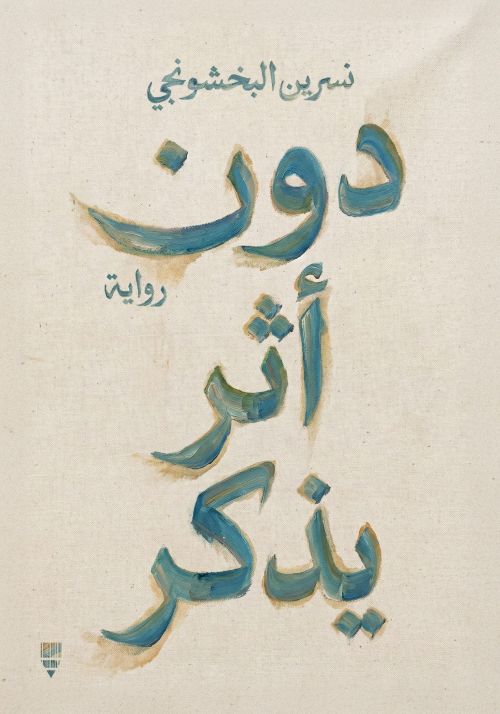 نسرين البخشونجي
دون
رواية
أثر
يذكر